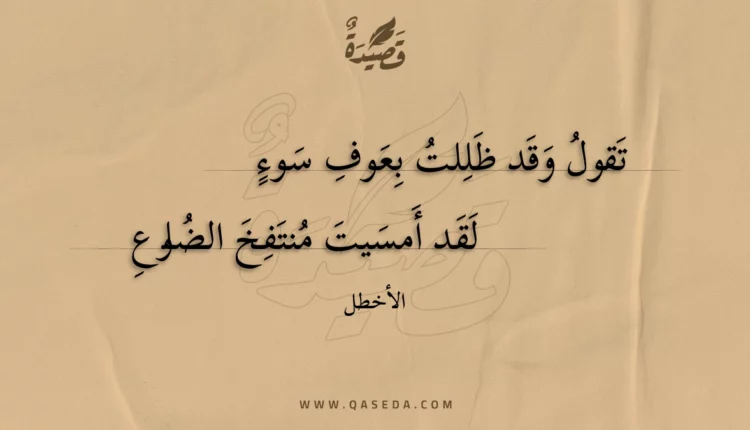 قَصِيْدَةٌ
تَقولُ وَقَد ظَلِلتُ بِعَوفِ سَوءٍ
لَقَد أَمسَيتَ مُنتَفِخَ الضُلوعِ
الأخطل
WWW.QASEDA.COM